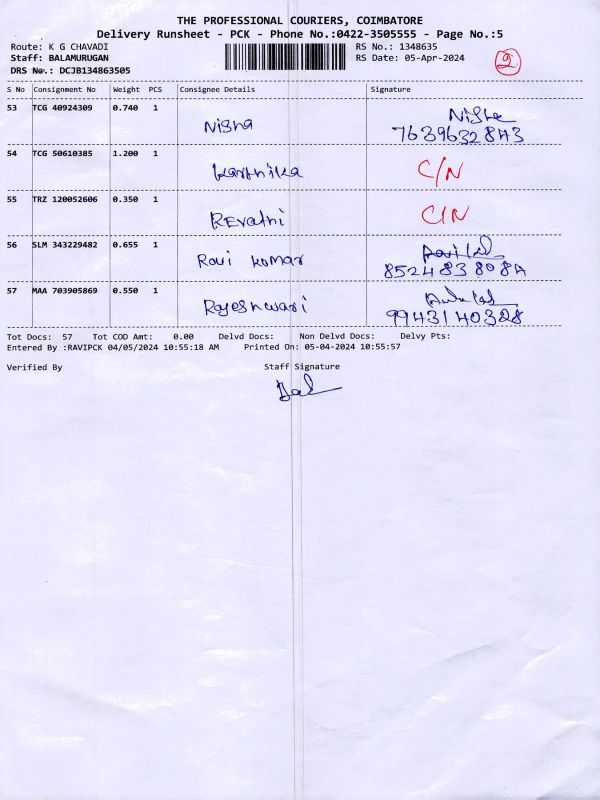 THE PROFESSIONAL COURIERS, COIMBATORE
Delivery Runsheet - PCK - Phone No.:0422-3505555 - Page No.:5
Route: K G CHAVADI RS No.: 1348635
Staff: BALAMURUGAN RS Date: 05-Apr-2024
2
DRS No.: DCJB134863505
S No Consignment No Weight PCS Consignee Details Signature
53 TCG 40924309 0.740 1 Nisha Nisha
76396328A3
54 TCG 50610385 1.200 1 Karthika C/N
55 TRZ 120052606 0.350 1 REvathi C/N
56 SLM 343229482 0.655 1 Ravi kumar
852483808A
57 MAA 703905869 0.550 1 Rajeshwari
9943140328
Tot Docs: 57 Tot COD Amt: 0.00 Delvd Docs: Non Delvd Docs: Delvy Pts:
Entered By :RAVIPCK 04/05/2024 10:55:18 AM Printed On: 05-04-2024 10:55:57
Verified By Staff Signature
Bal